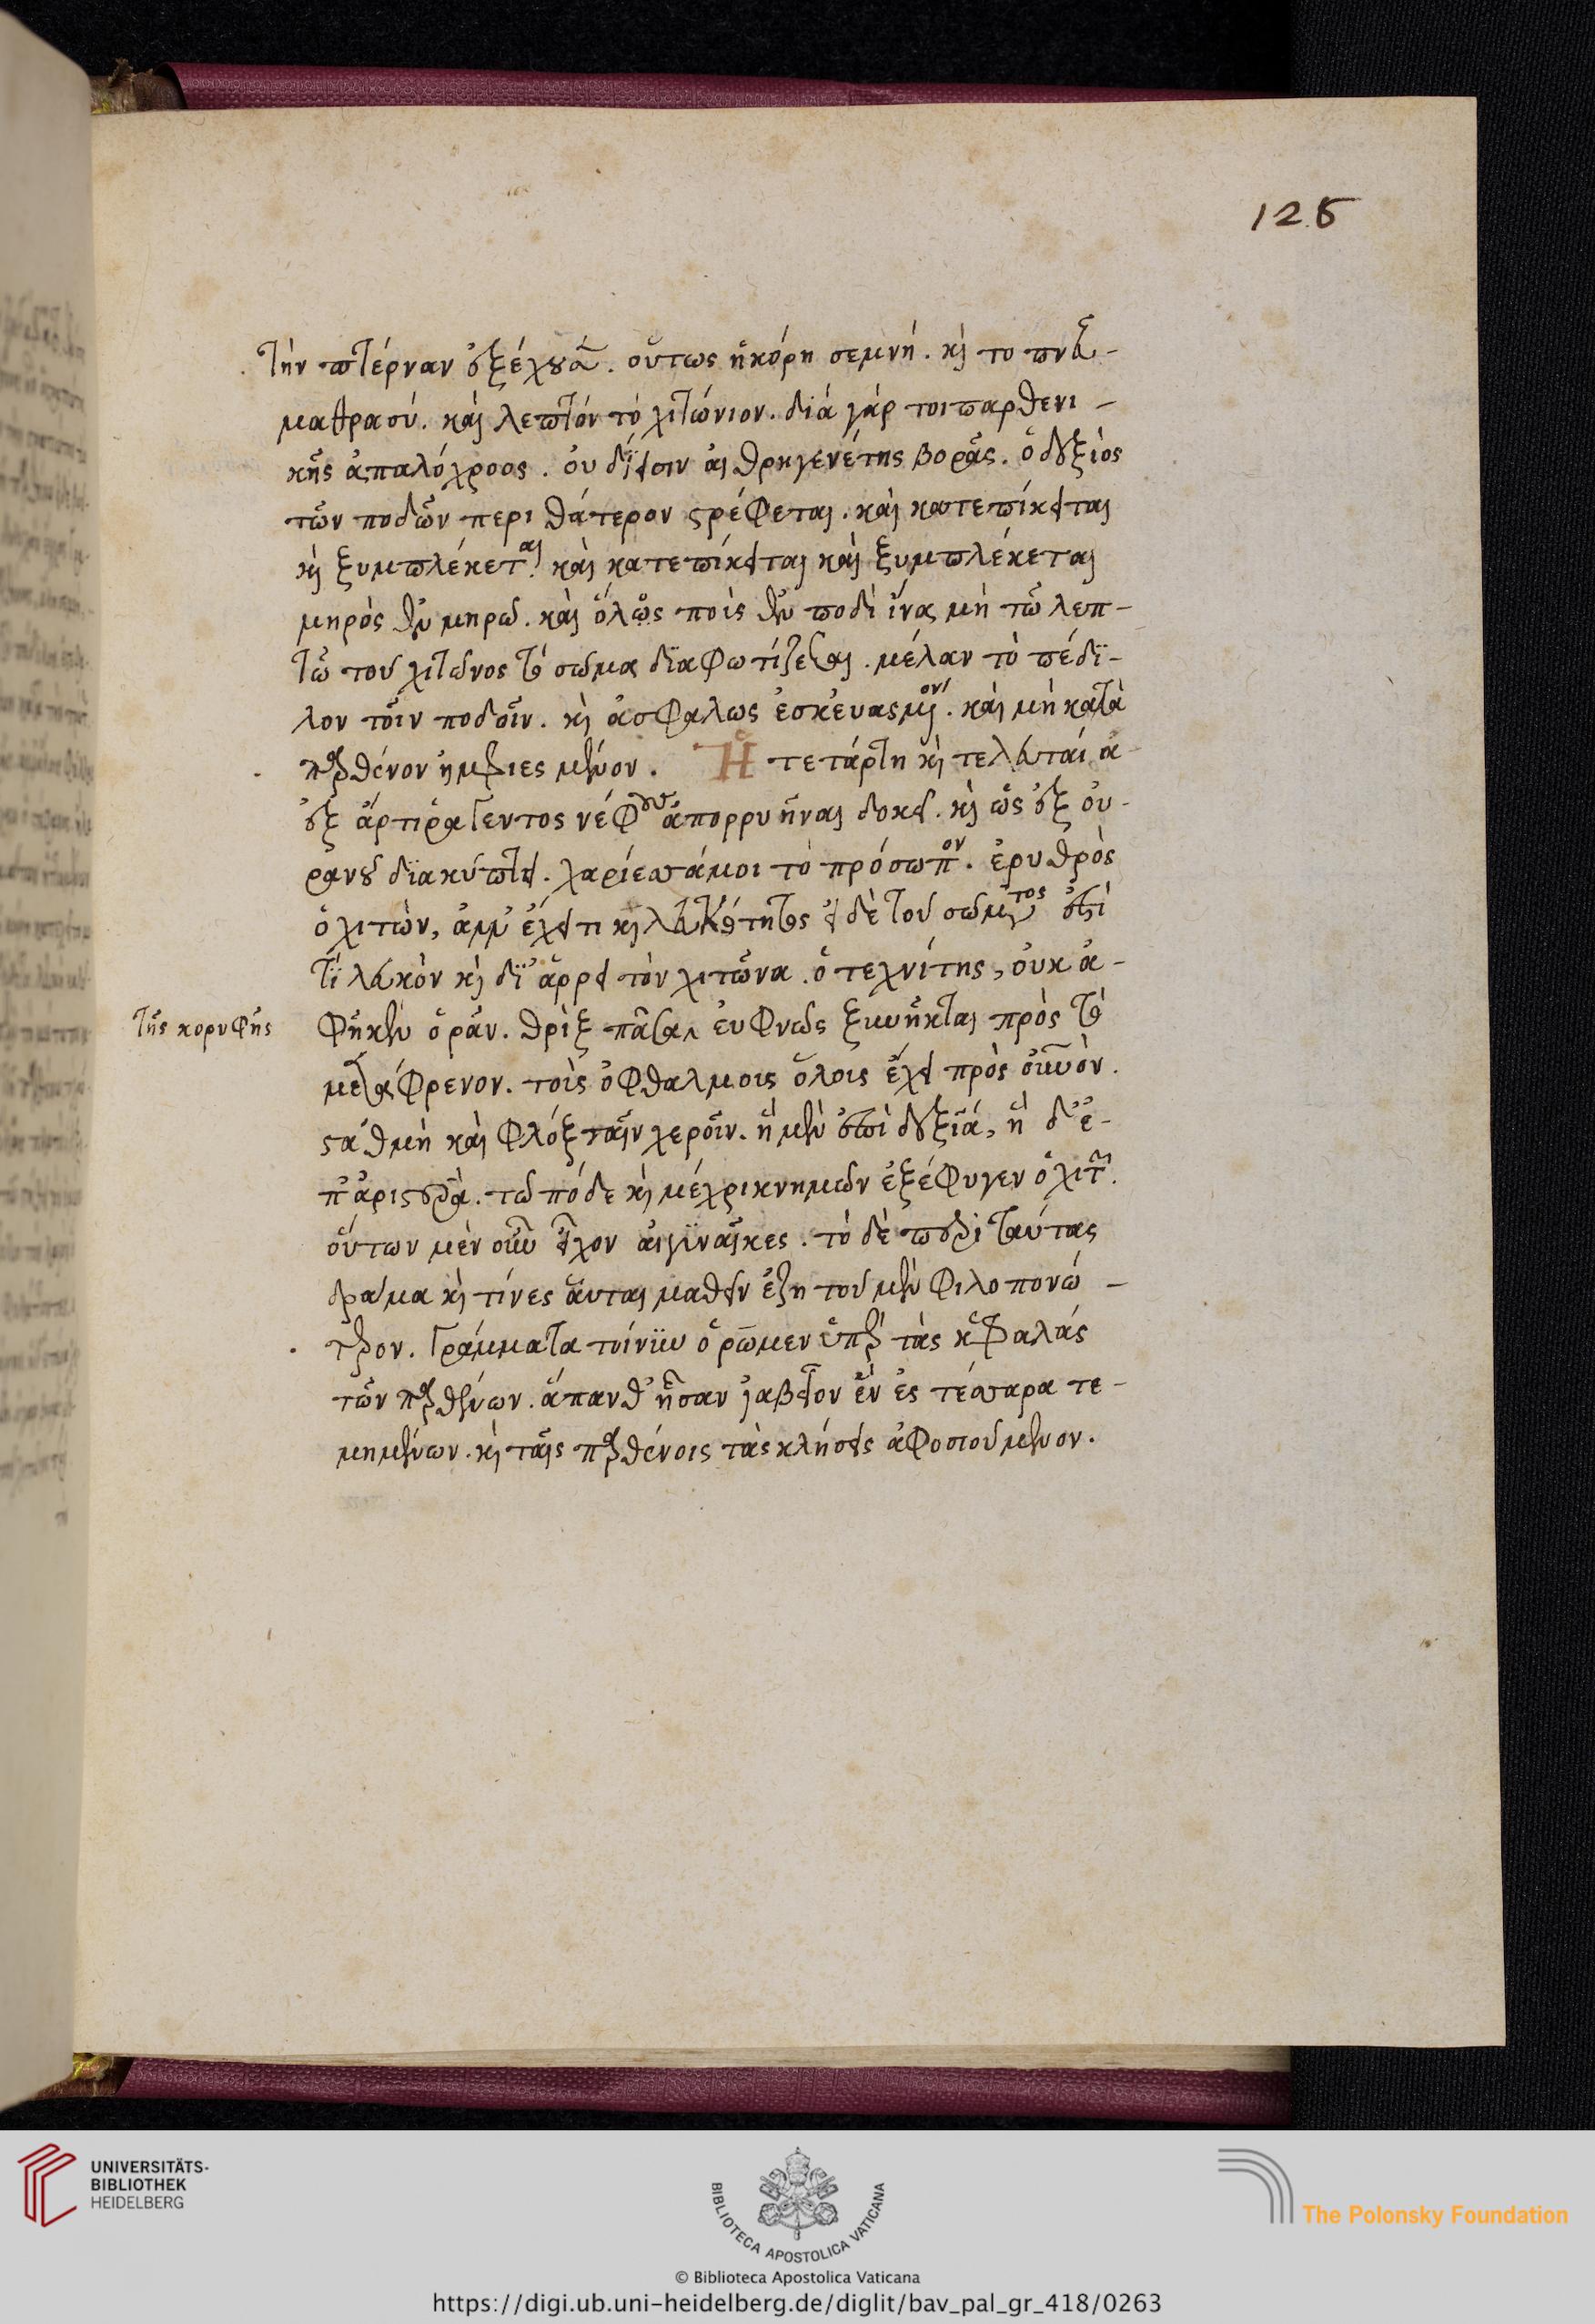 128
τὴν πτέρναν ἐξέχουσα. οὕτως ἡ κόρη σεμνή. καὶ το πνεῦ-
μα θρασύ. καὶ λεπτὸν τὸ χιτώνιον. διὰ γάρ τοι παρθενι-
κῆς ἁπαλόχροος. οὐ δίεισιν αἰθρηγενέτης βορᾶς. ὁ δεξιὸς
τῶν ποδῶν περι θάτερον στρέφεται. καὶ κατεπίκειται
καὶ ξυμπλέκεται. καὶ κατεπίκειται καὶ ξυμπλέκεται
μηρὸς ἐν μηρω. καὶ ὅλως ποὺς ἐν ποδὶ ἵνα μὴ τῶ λεπ-
τῶ του χιτωνος τὸ σωμα διαφωτίζεσθαι. μέλαν τὸ πέδι-
λον τοῖν ποδοῖν. καὶ ἀσφαλως ἐσκευασμένον. καὶ μὴ κατὰ
παρθένον ἠμφιεσμένον. Ἡ τετάρτη καὶ τελευταία
ἐξ ἀρτιραγεντος νέφους ἀπορρυῆναι δοκεῖ. καὶ ὡς ἐξ οὐ-
ρανοῦ διακύπτει. χαρίεσσά μοι τὸ πρόσωπον. ἐρυθρὸς
ὁ χιτὼν, ἀλλ' ἔχει τι καὶ λευκότητος εἰ δὲ τοῦ σώματος ἐστὶ
τὶ λευκὸν καὶ δι' ἁρρεῖ τὸν χιτῶνα. ὁ τεχνίτης, οὐκ ἀ-
Τῆς κορυφῆς
φῆκεν ὁρᾶν. θρὶξ πᾶσα εὐφυῶς ξυνῆκται πρὸς τὸ
μετάφρενον. τοὶς ὀφθαλμοις ὅλοις ἔχει πρὸς οὐρανὸν.
στάθμη καὶ φλὸξ ταῖν χεροῖν. ἡ μὲν ἐπὶ δεξιᾶ, ἡ δ' ἐ-
π' ἀριστερὰ. τὼ πόδε καὶ μέχρι κνημῶν ἐξέφυγεν ὁ χιτών.
οὕτων μὲν οὖν εἶχον αἱ γυναῖκες. τὸ δὲ περὶ ταύτας
δραμα καὶ τίνες αὗται μαθεῖν ἐζητοῦμεν φιλοπονώ-
τερον. Γράμματα τοίνυν ὁρῶμεν ὑπὲρ τὰς κεφαλάς
τῶν παρθένων. ἅπανθ' ἦσαν ἰαβεῖον ἓν ἐς τέσσαρα τε-
μημένων. καὶ ταῖς παρθένοις τὰς κλήσεις ἀφοσιούμενον.
UNIVERSITÄTS-
BIBLIOTHEK
HEIDELBERG
BIBLIOTECA APOSTOLICA VATICANA
The Polonsky Foundation
© Biblioteca Apostolica Vaticana
https://digi.ub.uni-heidelberg.de/diglit/bav_pal_gr_418/0263